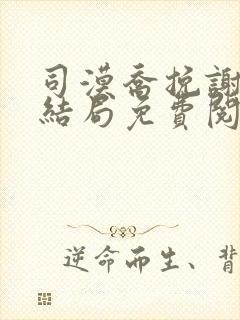 司漠喬挽謝
結局免費閱
逆命而生、背